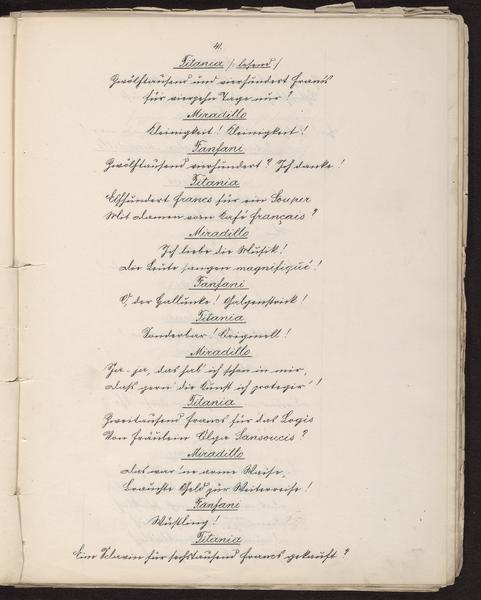 41.
Titania /: lesend /
Zwölftausend und vierhundert Francs
für vierzehn Tage nur ?
Miradillo
Kleinigkeit ! Kleinigkeit !
Fanfani
Zwölftausend vierhundert ? Ich danke !
Titania
Elfhundert Francs für ein Souper
Mit Damen vom Café français ?
Miradillo
Ich liebe die Musik !
Die Leute sangen magnifique !
Fanfani
O, der Hallunke ! Galgenstrick !
Titania
Sonderbar ! Originell !
Miradillo
Ja - ja, das hab' ich schon in mir,
Dass gern die Kunst ich protegir' !
Titania
Zweitausend Francs für das Logis
Von Fräulein Olga Sansoucis ?
Miradillo
Das war 'ne arme Waise,
Brauchte Geld zur Weiterreise !
Fanfani
Wüstling !
Titania
Eine Sclavin für sechstausend Francs gekauft ?